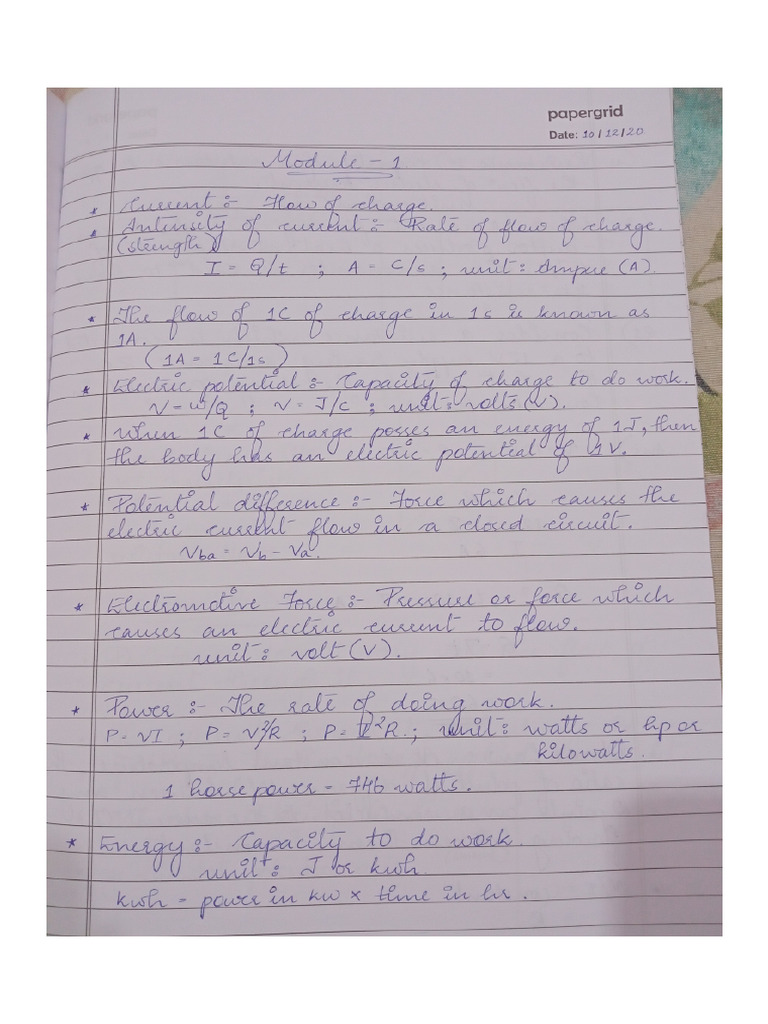 papergrid
Date: 10/12/20
Module - 1
* Current :- Flow of charge.
* Intensity of current :- Rate of flow of charge.
(strength)
I = Q/t ; A = C/s ; unit: Ampere (A).
* The flow of 1C of charge in 1s is known as
1A.
(1A = 1C/1s)
* Electric potential :- Capacity of charge to do work.
V = W/Q ; V = J/C ; unit: volts (V).
* When 1C of charge posses an energy of 1J, then
the body has an electric potential of 1V.
* Potential difference :- Force which causes the
electric current flow in a closed circuit.
Vba = Vb - Va.
* Electromotive Force :- Pressure or force which
causes an electric current to flow.
unit: volt (V).
* Power :- The rate of doing work.
P = VI ; P = V²/R ; P = I²R. ; unit: watts or hp or
kilowatts.
1 horsepower = 746 watts.
* Energy :- Capacity to do work.
unit: J or kwh
kwh = power in kw × time in hr.